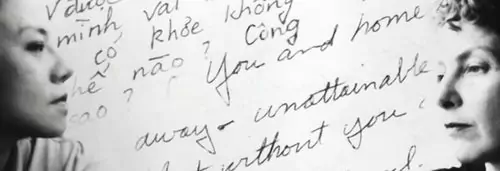 được
mình vài
có khỏe không
nào? Công
sao? You and home
away - unattainable,
without you